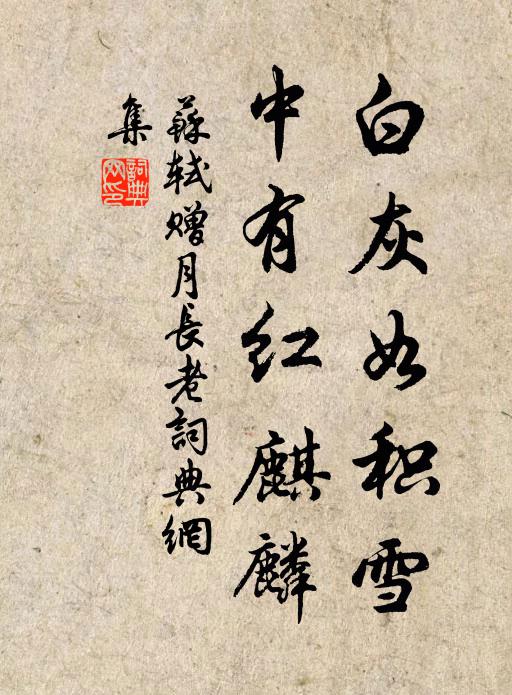 白灰如积雪
中有红麒麟
蘇軾赠月長老詞典網
集
詞典
网印